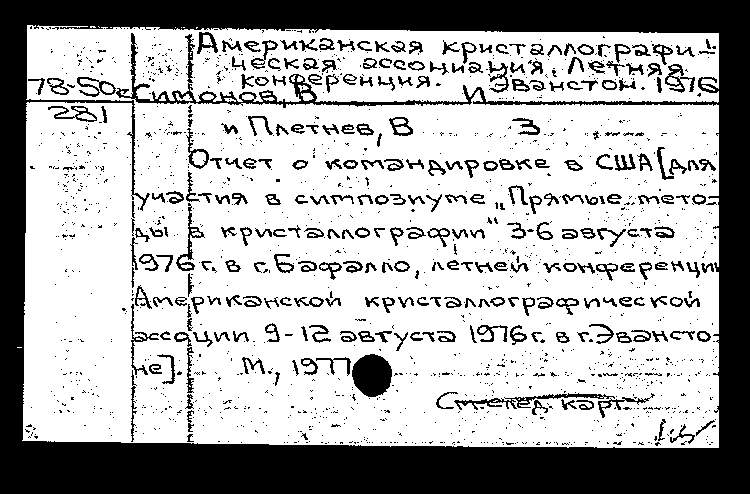 Американская кристаллографи-
ческая ассоциация. Летняя
конференция. Эванстон. 1976
78-50г Симонов, В И
281
и Плетнев, В З
Отчет о командировке в США [для
участия в симпозиуме „Прямые мето=
ды в кристаллографии" 3-6 августа
1976 г. в г. Бафалло, летней конференции
Американской кристаллографической
ассоции 9-12 августа 1976 г. в г. Эвансто=
не]. М., 1977
См. след. карт.